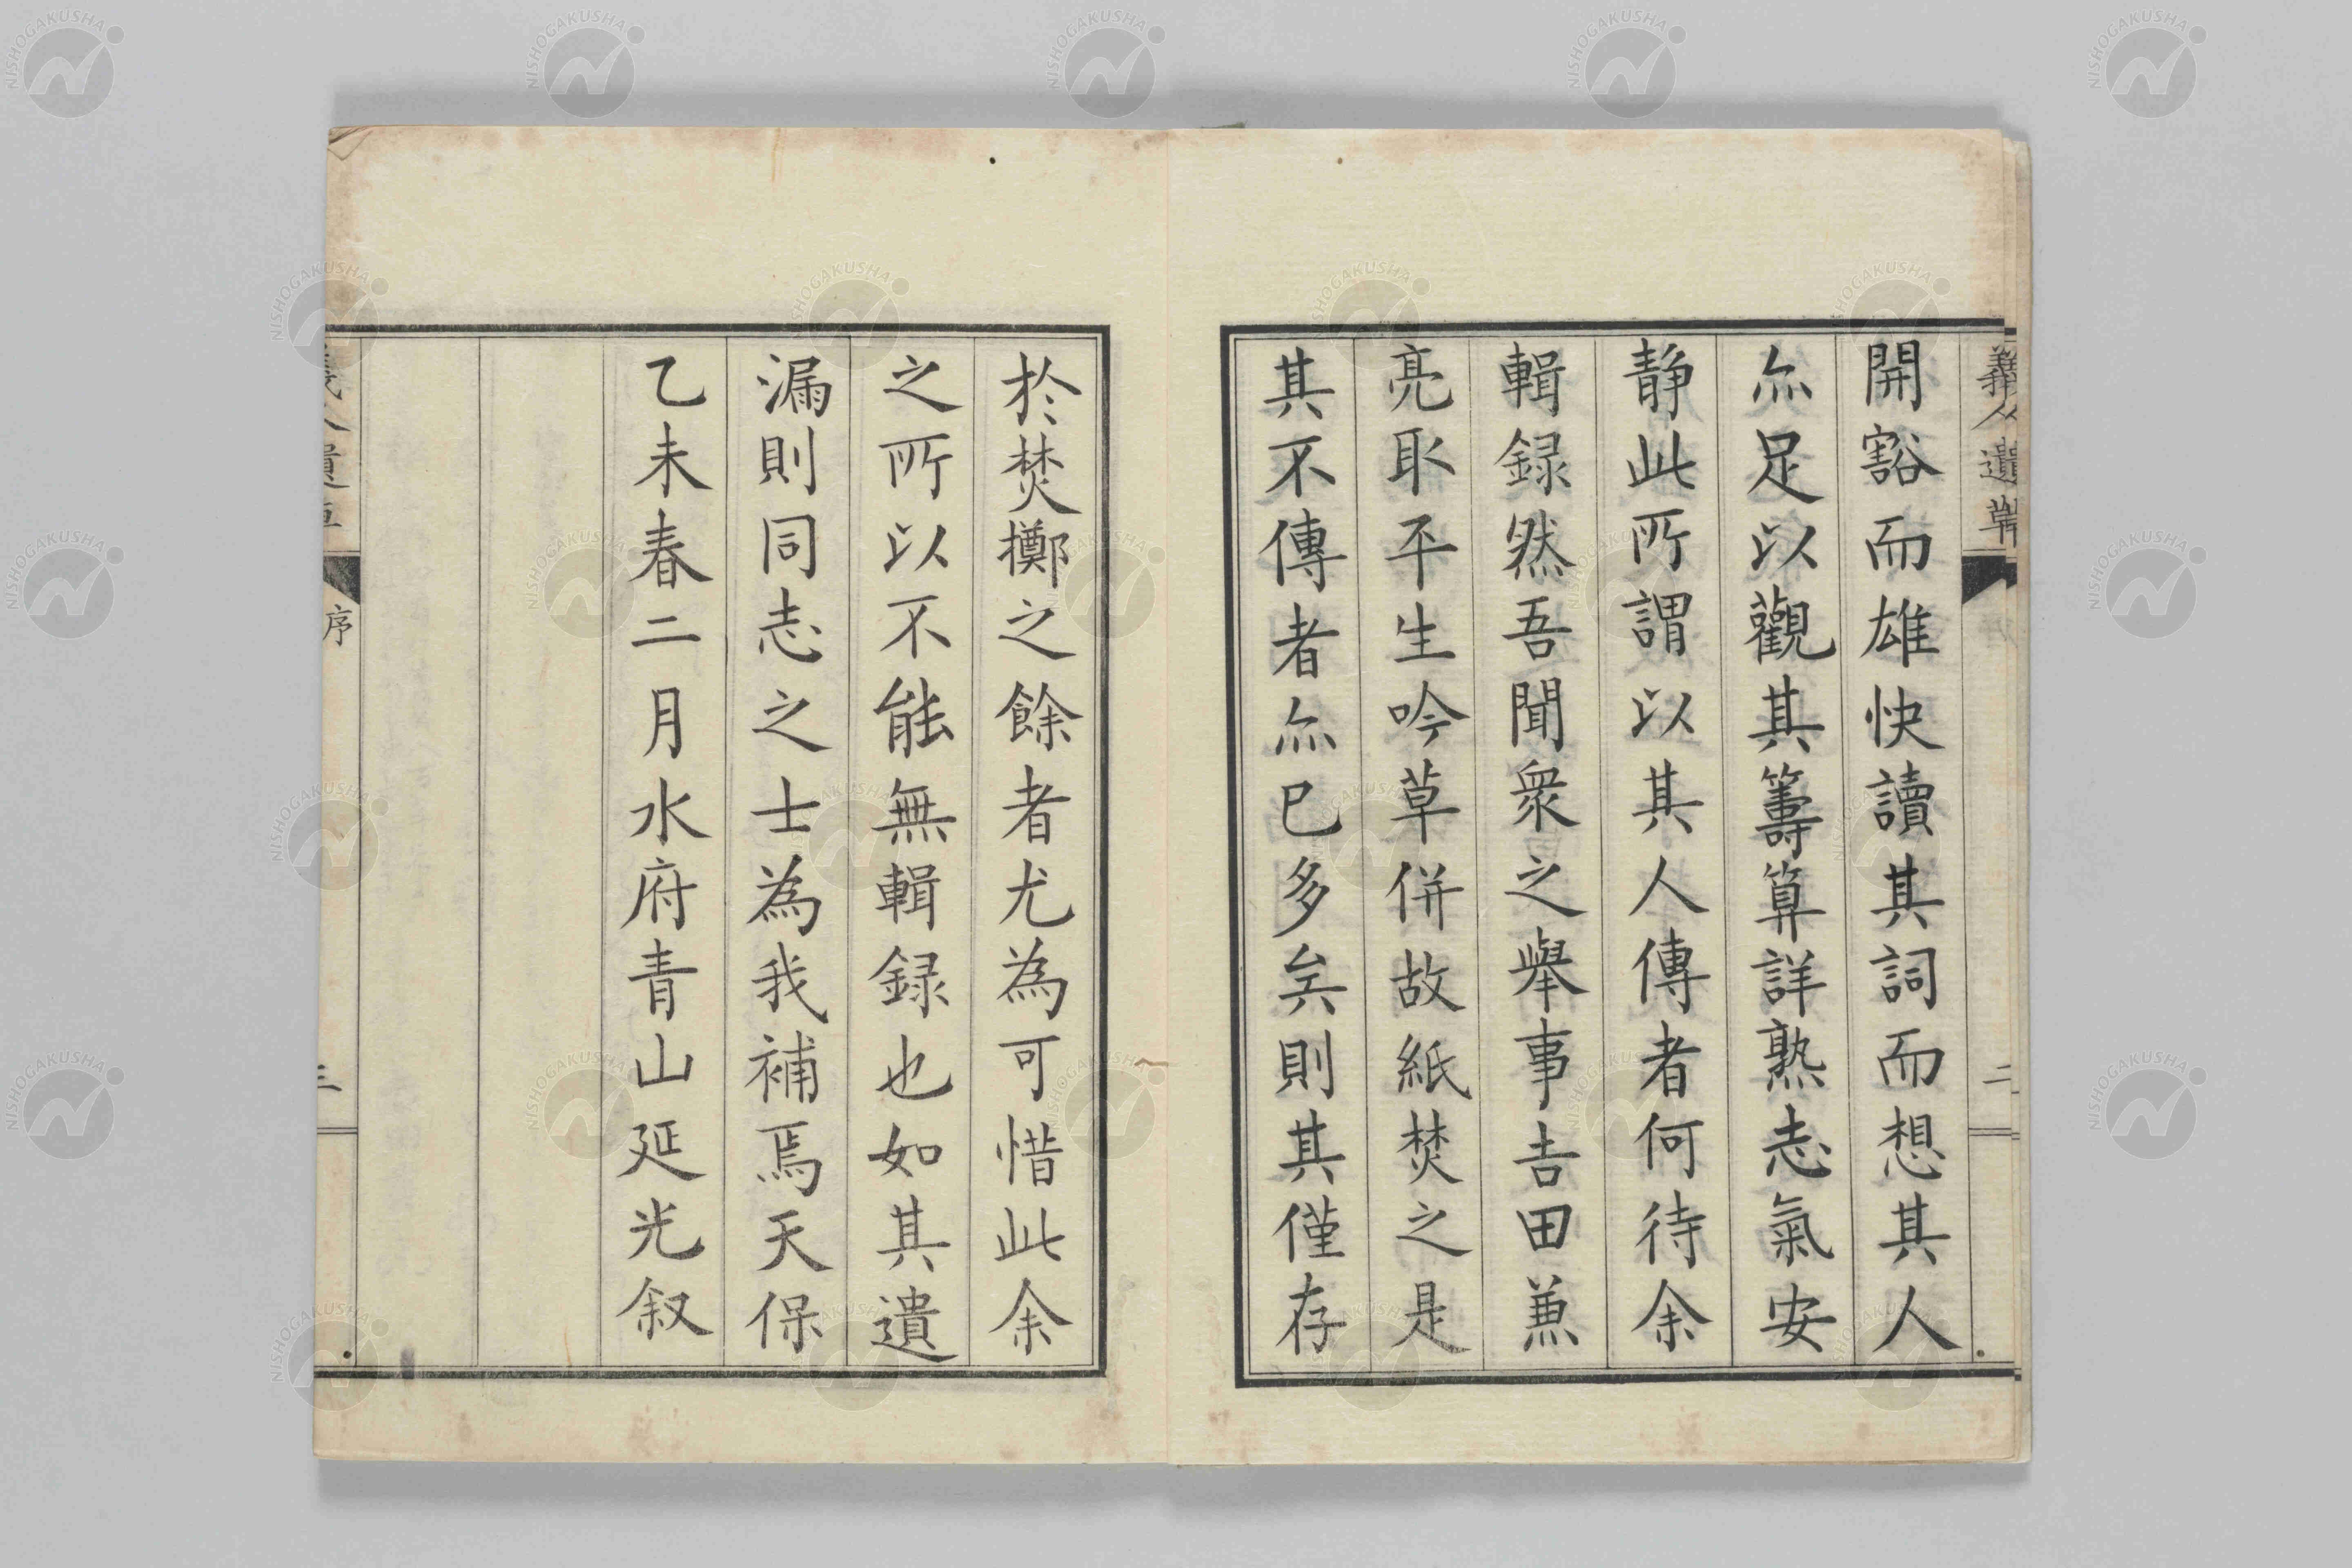 義人遺草
二
開豁而雄快讀其詞而想其人
亦足以觀其籌算詳熟志氣安
靜此所謂以其人傳者何待余
輯録然吾聞衆之舉事吉田兼
亮取平生吟草併故紙焚之是
其不傳者亦已多矣則其僅存
於焚擲之餘者尤為可惜此余
之所以不能無輯録也如其遺
漏則同志之士為我補焉天保
乙未春二月水府青山延光叙
序
三
NISHOGAKUSHA